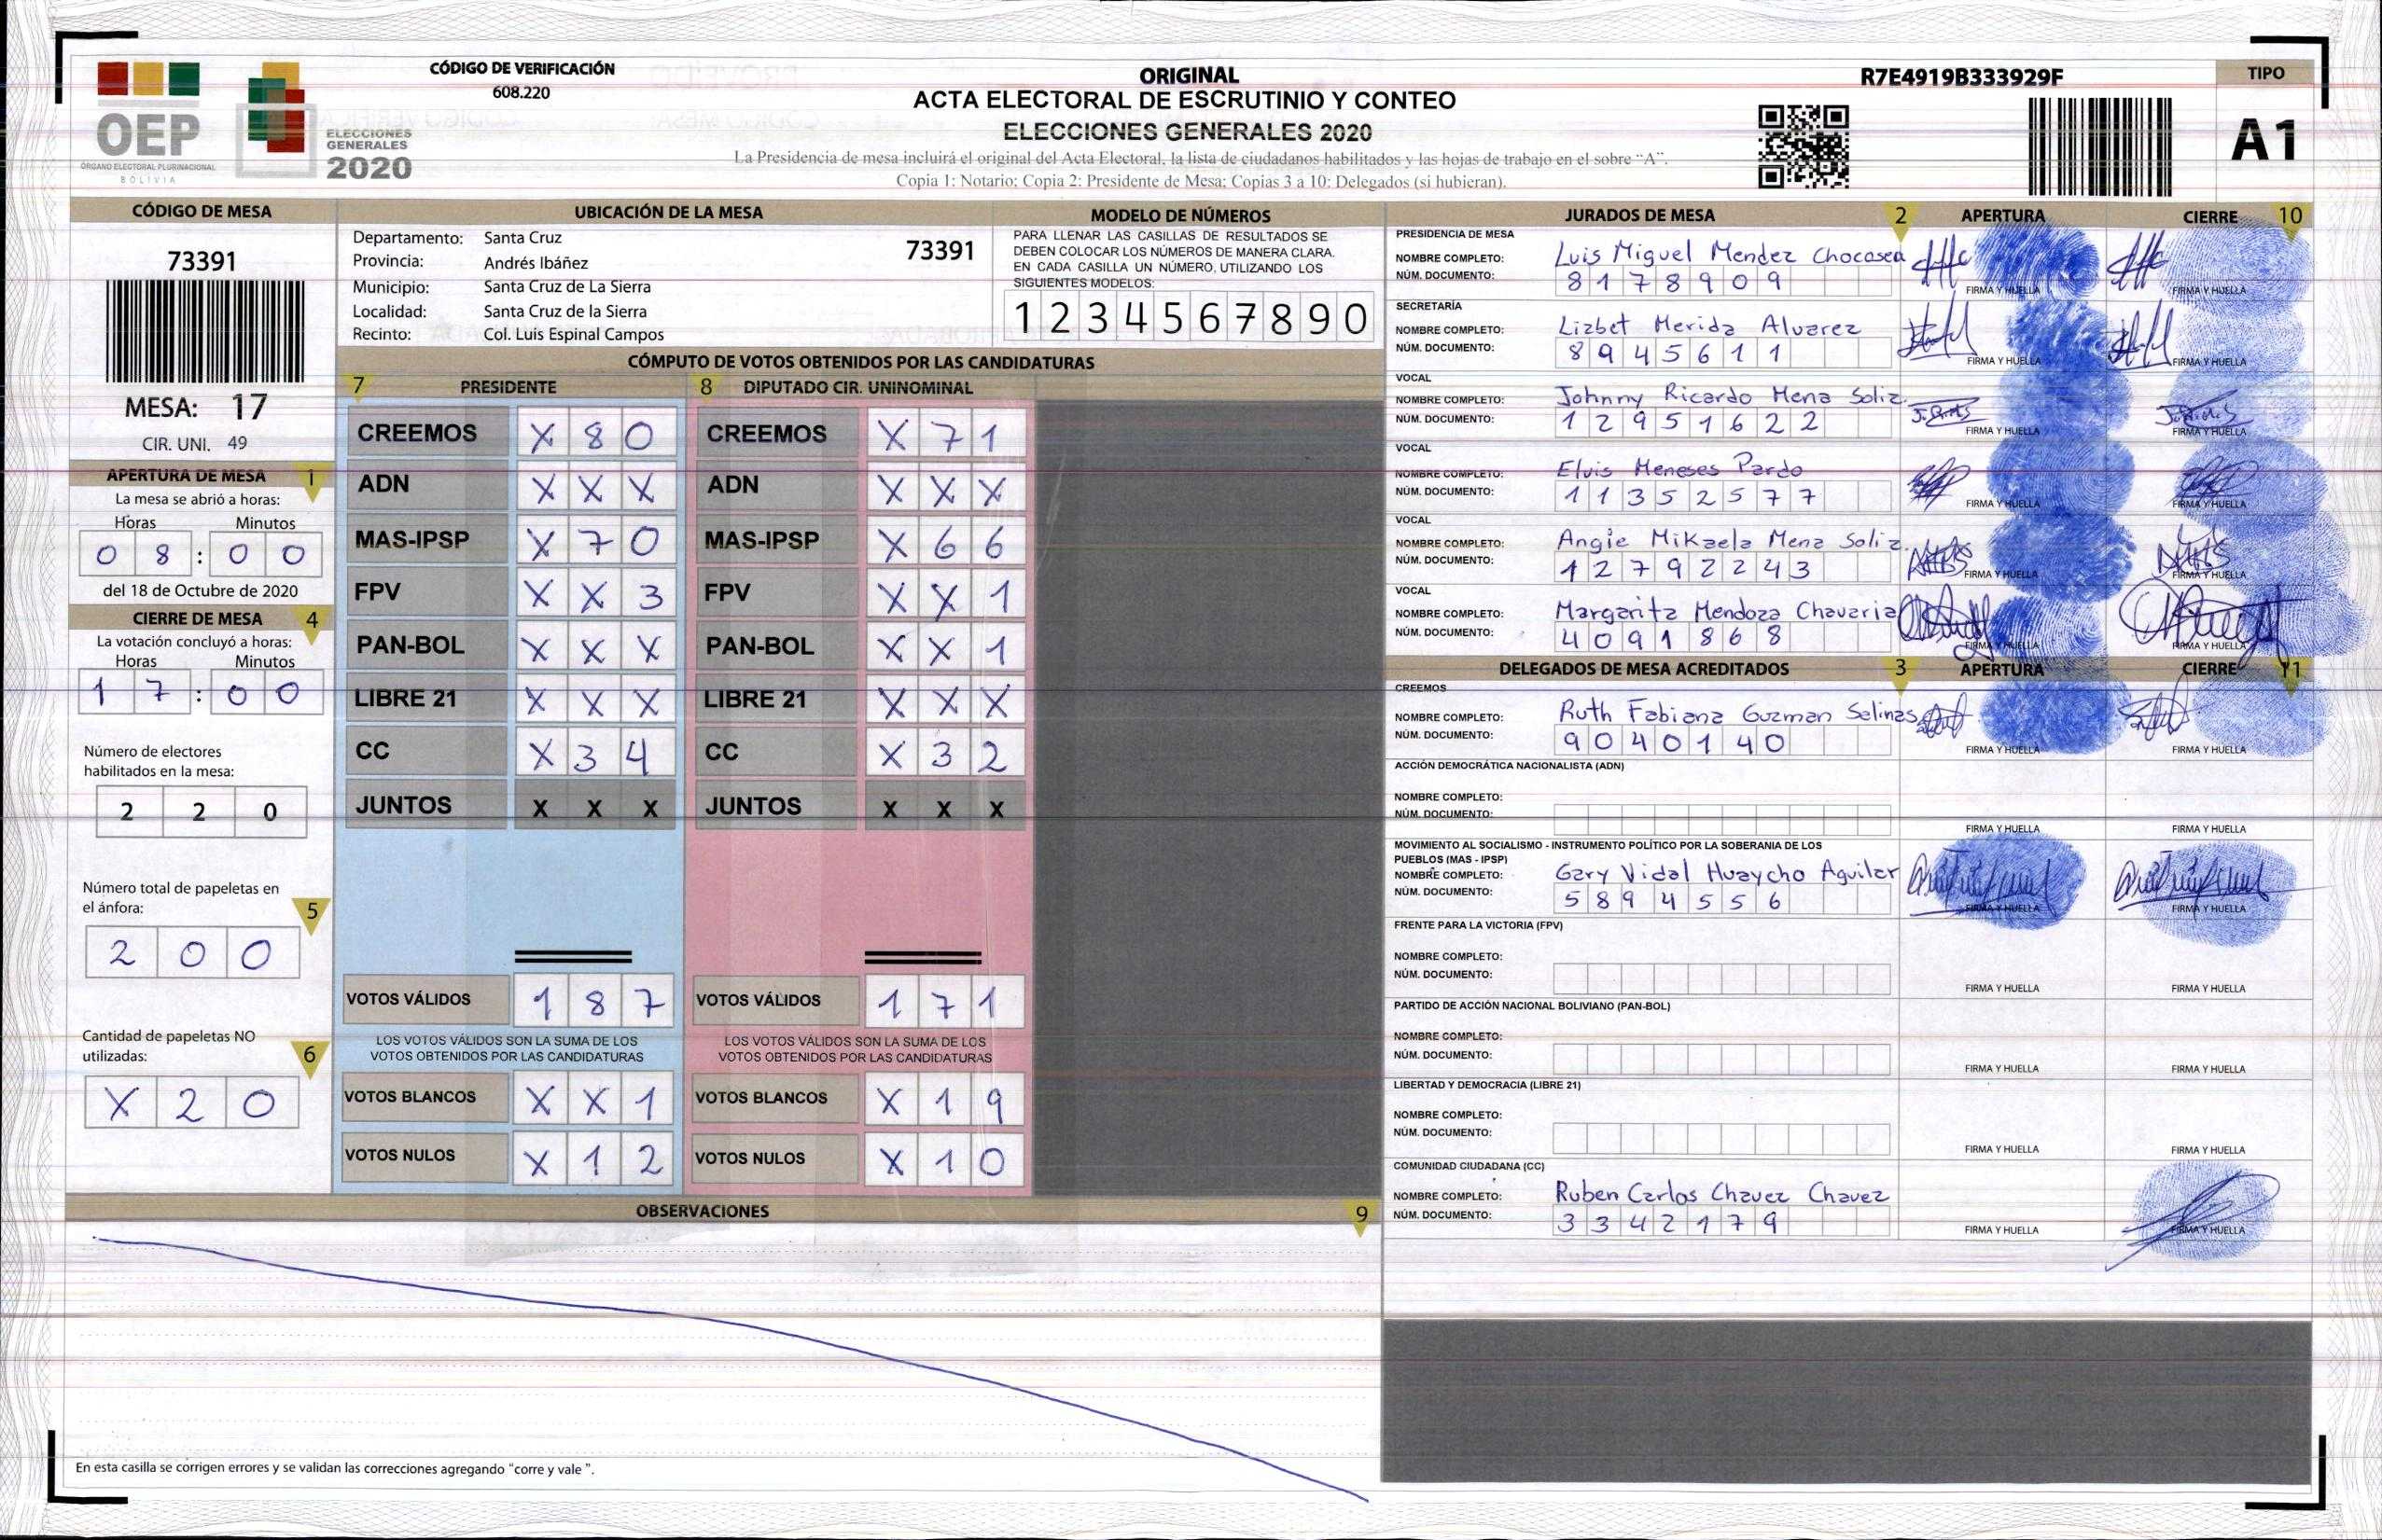 OEP
ÓRGANO ELECTORAL PLURINACIONAL
BOLIVIA
ELECCIONES
GENERALES
2020
CÓDIGO DE VERIFICACIÓN
608.220
ORIGINAL
ACTA ELECTORAL DE ESCRUTINIO Y CONTEO
ELECCIONES GENERALES 2020
La Presidencia de mesa incluirá el original del Acta Electoral, la lista de ciudadanos habilitados y las hojas de trabajo en el sobre "A".
Copia 1: Notario; Copia 2: Presidente de Mesa; Copias 3 a 10: Delegados (si hubieran).
R7E4919B333929F
TIPO
A1
CÓDIGO DE MESA
73391
MESA: 17
CIR. UNI. 49
APERTURA DE MESA 1
La mesa se abrió a horas:
Horas Minutos
0 8 : 0 0
del 18 de Octubre de 2020
CIERRE DE MESA 4
La votación concluyó a horas:
Horas Minutos
1 7 : 0 0
Número de electores
habilitados en la mesa:
2 2 0
Número total de papeletas en
el ánfora: 5
2 0 0
Cantidad de papeletas NO
utilizadas: 6
X 2 0
UBICACIÓN DE LA MESA
Departamento: Santa Cruz
73391
Provincia: Andrés Ibáñez
Municipio: Santa Cruz de La Sierra
Localidad: Santa Cruz de la Sierra
Recinto: Col. Luis Espinal Campos
MODELO DE NÚMEROS
PARA LLENAR LAS CASILLAS DE RESULTADOS SE
DEBEN COLOCAR LOS NÚMEROS DE MANERA CLARA.
EN CADA CASILLA UN NÚMERO, UTILIZANDO LOS
SIGUIENTES MODELOS:
1 2 3 4 5 6 7 8 9 0
CÓMPUTO DE VOTOS OBTENIDOS POR LAS CANDIDATURAS
7 PRESIDENTE 8 DIPUTADO CIR. UNINOMINAL
CREEMOS X 8 0 CREEMOS X 7 1
ADN X X X ADN X X X
MAS-IPSP X 7 0 MAS-IPSP X 6 6
FPV X X 3 FPV X X 1
PAN-BOL X X X PAN-BOL X X 1
LIBRE 21 X X X LIBRE 21 X X X
CC X 3 4 CC X 3 2
JUNTOS X X X JUNTOS X X X
VOTOS VÁLIDOS 1 8 7 VOTOS VÁLIDOS 1 7 1
LOS VOTOS VÁLIDOS SON LA SUMA DE LOS LOS VOTOS VÁLIDOS SON LA SUMA DE LOS
VOTOS OBTENIDOS POR LAS CANDIDATURAS VOTOS OBTENIDOS POR LAS CANDIDATURAS
VOTOS BLANCOS X X 1 VOTOS BLANCOS X 1 9
VOTOS NULOS X 1 2 VOTOS NULOS X 1 0
OBSERVACIONES 9
En esta casilla se corrigen errores y se validan las correcciones agregando "corre y vale ".
JURADOS DE MESA 2 APERTURA CIERRE 10
PRESIDENCIA DE MESA
NOMBRE COMPLETO: Luis Miguel Mendez Chocasea
NÚM. DOCUMENTO: 8178909
FIRMA Y HUELLA FIRMA Y HUELLA
SECRETARÍA
NOMBRE COMPLETO: Lizbet Merida Alvarez
NÚM. DOCUMENTO: 8945611
FIRMA Y HUELLA FIRMA Y HUELLA
VOCAL
NOMBRE COMPLETO: Johnny Ricardo Mena Soliz.
NÚM. DOCUMENTO: 12951622
FIRMA Y HUELLA FIRMA Y HUELLA
VOCAL
NOMBRE COMPLETO: Elvis Meneses Pardo
NÚM. DOCUMENTO: 11352577
FIRMA Y HUELLA FIRMA Y HUELLA
VOCAL
NOMBRE COMPLETO: Angie Mikaela Mena Soliz.
NÚM. DOCUMENTO: 12792243
FIRMA Y HUELLA FIRMA Y HUELLA
VOCAL
NOMBRE COMPLETO: Margarita Mendoza Chavaria
NÚM. DOCUMENTO: 4091868
FIRMA Y HUELLA FIRMA Y HUELLA
DELEGADOS DE MESA ACREDITADOS 3 APERTURA CIERRE 11
CREEMOS
NOMBRE COMPLETO: Ruth Fabiana Guzman Salinas
NÚM. DOCUMENTO: 9040140
FIRMA Y HUELLA FIRMA Y HUELLA
ACCIÓN DEMOCRÁTICA NACIONALISTA (ADN)
NOMBRE COMPLETO:
NÚM. DOCUMENTO:
FIRMA Y HUELLA FIRMA Y HUELLA
MOVIMIENTO AL SOCIALISMO - INSTRUMENTO POLÍTICO POR LA SOBERANIA DE LOS
PUEBLOS (MAS - IPSP)
NOMBRE COMPLETO: Gary Vidal Huaycho Aguilar
NÚM. DOCUMENTO: 5894556
FIRMA Y HUELLA FIRMA Y HUELLA
FRENTE PARA LA VICTORIA (FPV)
NOMBRE COMPLETO:
NÚM. DOCUMENTO:
FIRMA Y HUELLA FIRMA Y HUELLA
PARTIDO DE ACCIÓN NACIONAL BOLIVIANO (PAN-BOL)
NOMBRE COMPLETO:
NÚM. DOCUMENTO:
FIRMA Y HUELLA FIRMA Y HUELLA
LIBERTAD Y DEMOCRACIA (LIBRE 21)
NOMBRE COMPLETO:
NÚM. DOCUMENTO:
FIRMA Y HUELLA FIRMA Y HUELLA
COMUNIDAD CIUDADANA (CC)
NOMBRE COMPLETO: Ruben Carlos Chavez Chavez
NÚM. DOCUMENTO: 3342179
FIRMA Y HUELLA FIRMA Y HUELLA